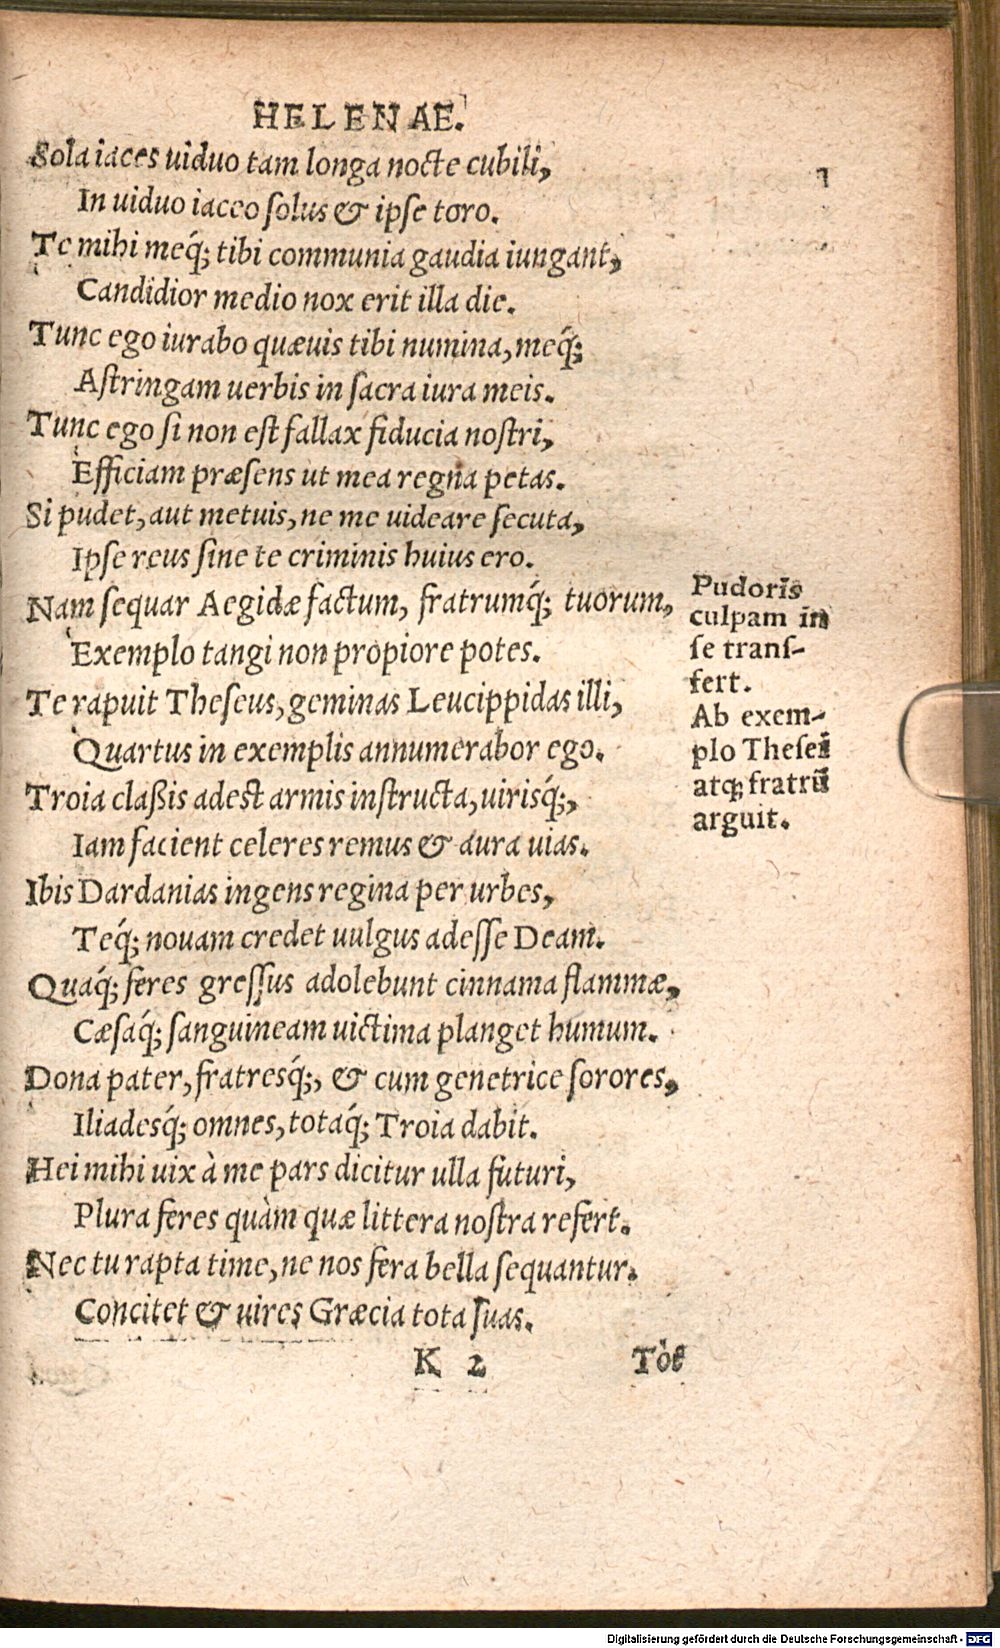 HELENAE.
Sola iaces uiduo tam longa nocte cubili,
In uiduo iaceo solus & ipse toro.
Te mihi meq́; tibi communia gaudia iungant,
Candidior medio nox erit illa die.
Tunc ego iurabo quæuis tibi numina, meq́;
Astringam uerbis in sacra iura meis.
Tunc ego si non est fallax fiducia nostri,
Efficiam præsens ut mea regna petas.
Si pudet, aut metuis, ne me uideare secuta,
Ipse reus sine te criminis huius ero.
Nam sequar Aegidæ factum, fratrumq́; tuorum,
Exemplo tangi non propiore potes.
Te rapuit Theseus, geminas Leucippidas illi,
Quartus in exemplis annumerabor ego.
Troia claßis adest armis instructa, uirisq́;,
Iam facient celeres remus & aura uias.
Ibis Dardanias ingens regina per urbes,
Teq́; nouam credet uulgus adesse Deam.
Quaq́; feres gressus adolebunt cinnama flammæ,
Cæsaq́; sanguineam uictima planget humum.
Dona pater, fratresq́;, & cum genetrice sorores,
Iliadesq́; omnes, totaq́; Troia dabit.
Hei mihi uix à me pars dicitur ulla futuri,
Plura feres quàm quæ littera nostra refert.
Nec tu rapta time, ne nos fera bella sequantur.
Concitet & uires Græcia tota suas.
K 2 Tòt
Pudoris
culpam in
se trans-
fert.
Ab exem-
plo Thesei
atq; fratrũ
arguit.
Digitalisierung gefördert durch die Deutsche Forschungsgemeinschaft - DFG